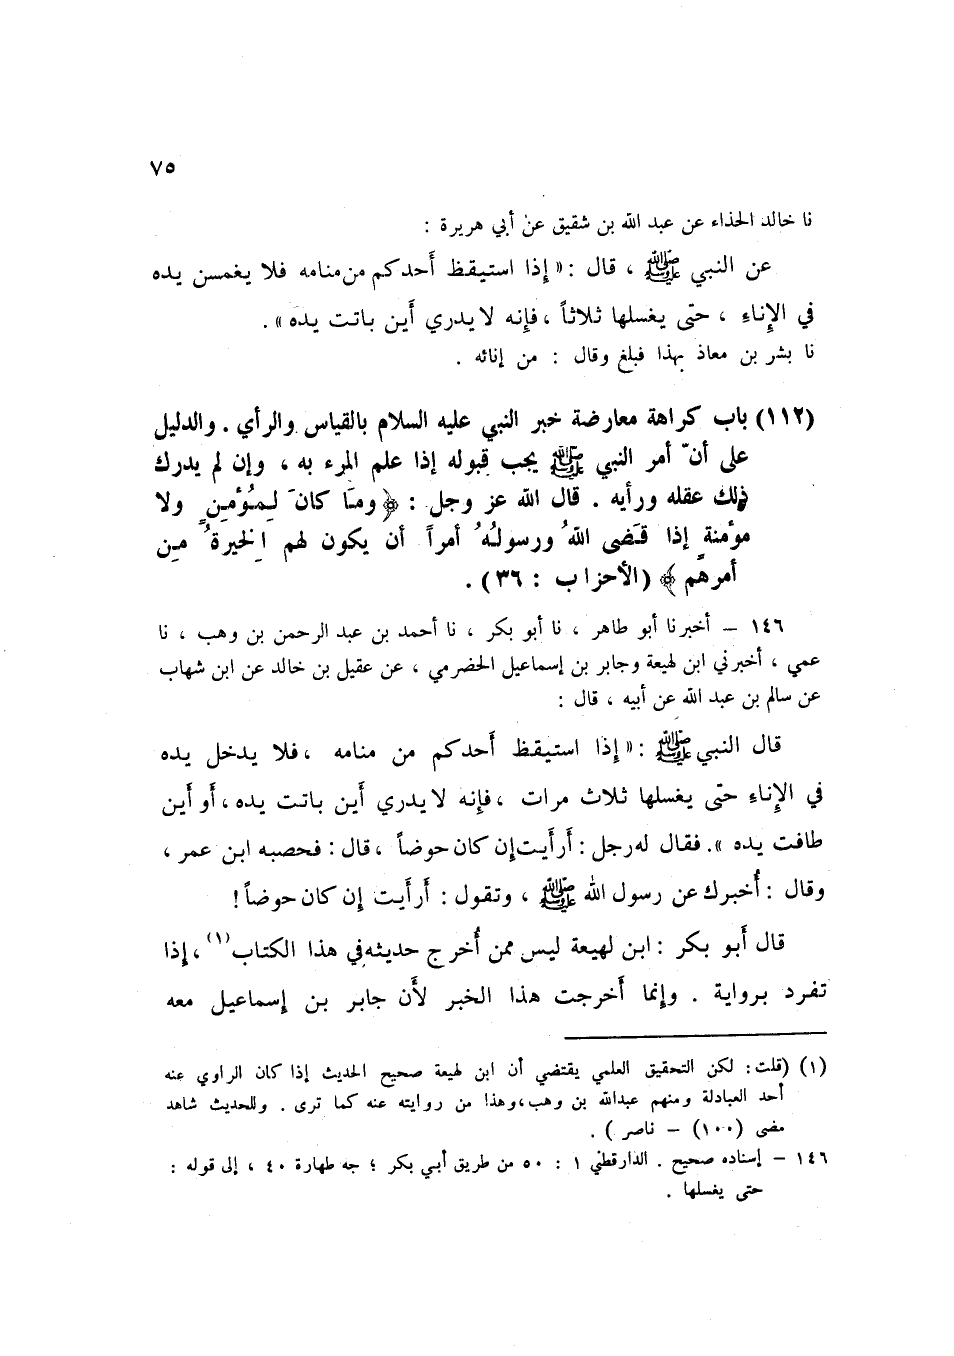 ٧٥
نا خالد الحذاء عن عبد الله بن شقيق عن أبي هريرة :
عن النبي ﷺ ، قال : « إذا استيقظ أحدكم من منامه فلا يغمسن يده
في الإناء ، حتى يغسلها ثلاثاً ، فإنه لا يدري أين باتت يده » .
نا بشر بن معاذ بهذا فبلغ وقال : من إنائه .
(١١٢) باب كراهة معارضة خبر النبي عليه السلام بالقياس والرأي . والدليل
على أنّ أمر النبي ﷺ يجب قبوله إذا علم المرء به ، وإن لم يدرك
ذلك عقله ورأيه . قال الله عز وجل : ﴿ ومَا كانَ لِمُؤمِنٍ ولا
مؤمنةٍ إذا قَضى اللهُ ورسولُهُ أمراً أن يكون لهم الخِيرةُ مِن
أمرهم ﴾ (الأحزاب : ٣٦) .
١٤٦ – أخبرنا أبو طاهر ، نا أبو بكر ، نا أحمد بن عبد الرحمن بن وهب ، نا
عمي ، أخبرني ابن لهيعة وجابر بن إسماعيل الحضرمي ، عن عقيل بن خالد عن ابن شهاب
عن سالم بن عبد الله عن أبيه ، قال :
قال النبي ﷺ : « إذا استيقظ أحدكم من منامه ، فلا يدخل يده
في الإناء حتى يغسلها ثلاث مرات ، فإنه لا يدري أين باتت يده ، أو أين
طافت يده » . فقال له رجل : أرأيت إن كان حوضاً ، قال : فحصبه ابن عمر ،
وقال : أُخبرك عن رسول الله ﷺ ، وتقول : أرأيت إن كان حوضاً !
قال أبو بكر : ابن لهيعة ليس ممن أُخرج حديثه في هذا الكتاب (١) ، إذا
تفرد برواية . وإنما أخرجت هذا الخبر لأن جابر بن إسماعيل معه
(١) (قلت : لكن التحقيق العلمي يقتضي أن ابن لهيعة صحيح الحديث إذا كان الراوي عنه
أحد العبادلة ومنهم عبدالله بن وهب ، وهذا من روايته عنه كما ترى . وللحديث شاهد
مضى (١٠٠) – ناصر ) .
١٤٦ – إسناده صحيح . الدارقطني ١ : ٥٠ من طريق أبي بكر ؛ جه طهارة ٤٠ ، إلى قوله :
حتى يغسلها .